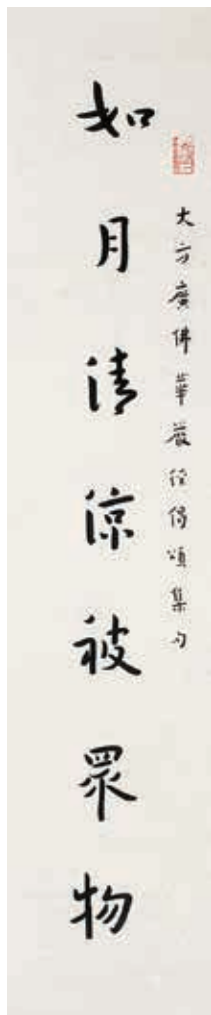 大方廣佛華嚴經偈頌集句
如月清涼被眾物